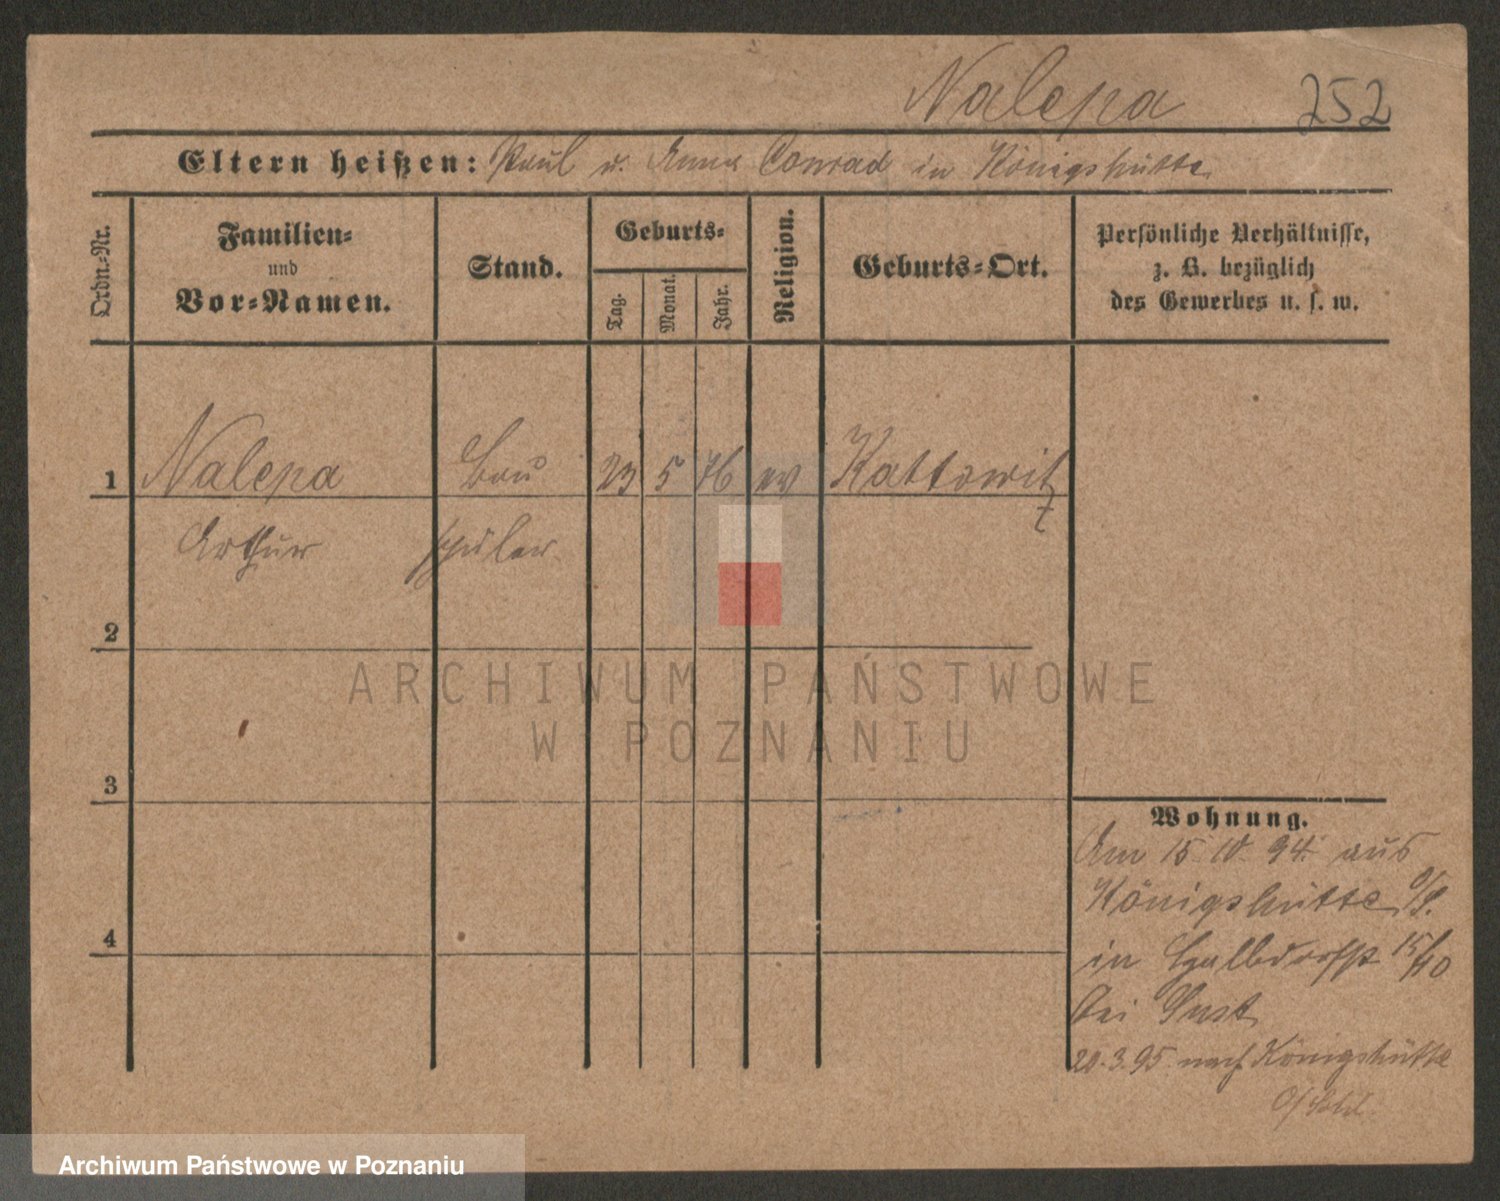 Nalepa 252
Eltern heißen: Paul u. Anna Conrad in Königshütte.
Ordn.-Nr.
Familien-
und
Vor-Namen.
Stand.
Geburts-
Tag.
Monat.
Jahr.
Religion.
Geburts-Ort.
Persönliche Verhältnisse,
z. B. bezüglich
des Gewerbes u. s. w.
1 Nalepa Bau 23 5 76 ev Kattowitz
Arthur schüler
2
ARCHIWUM PAŃSTWOWE
W POZNANIU
3
Wohnung.
Am 15 10 94 aus
Königshütte O/S.
4
in Halbdorfstr 15/40
bei
20.3.95 nach Königshütte
O/Schl.
Archiwum Państwowe w Poznaniu